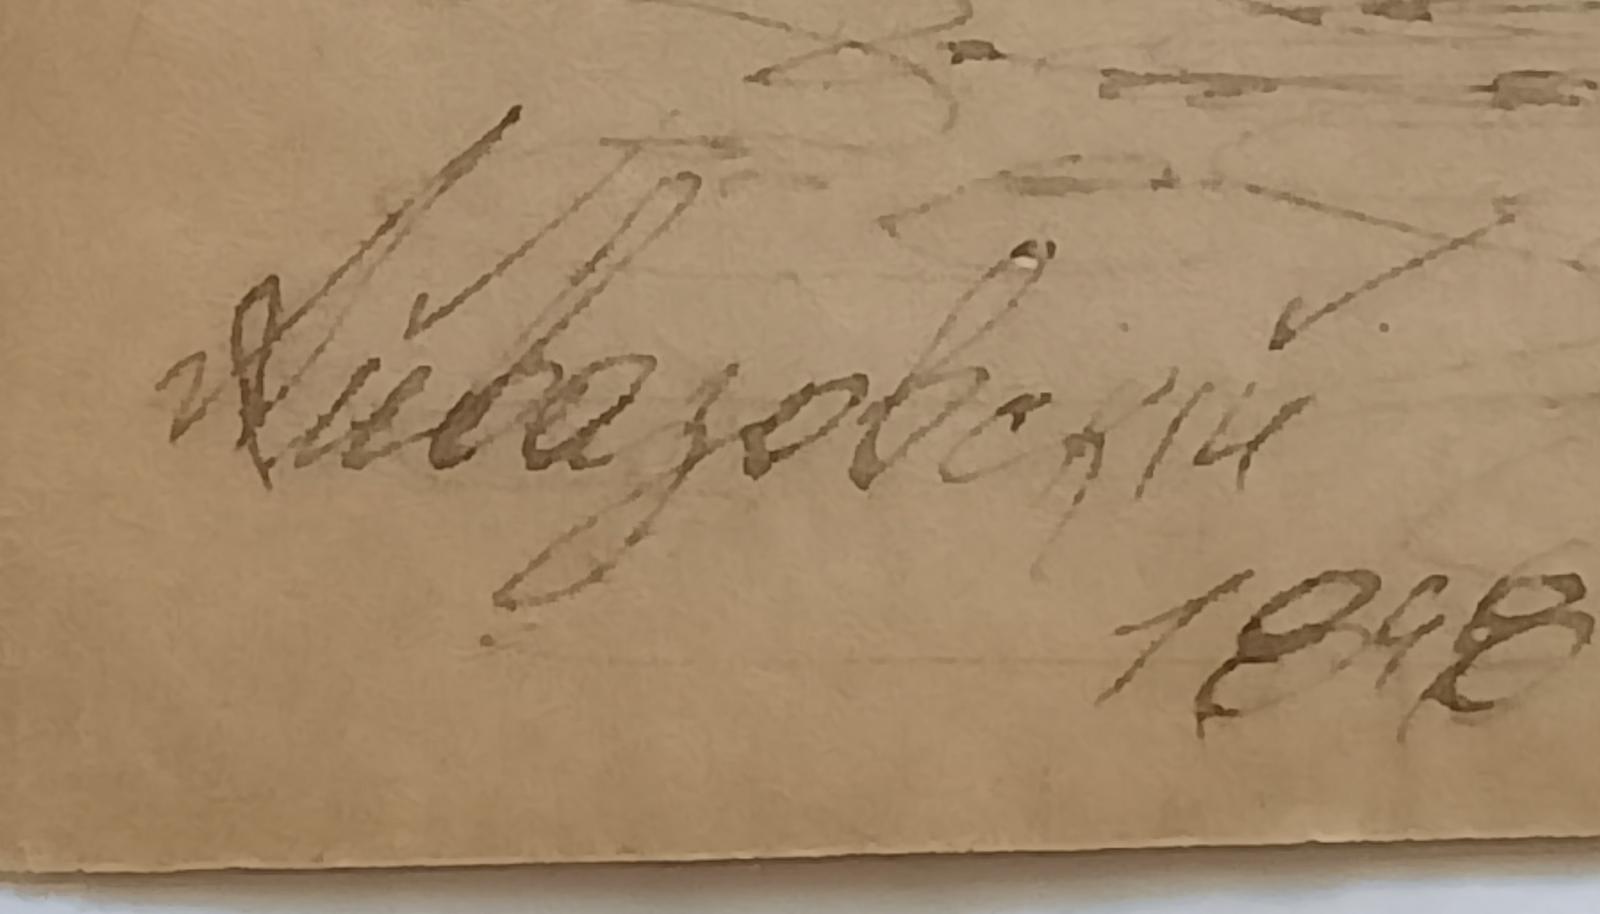 Айвазовский
1848